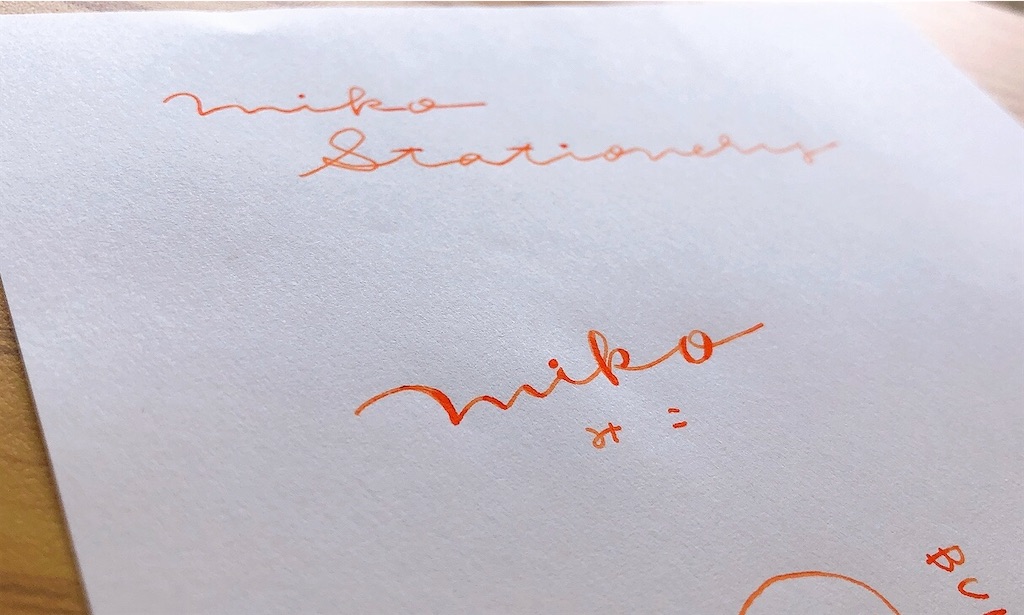 miko
Stationery
miko
みこ